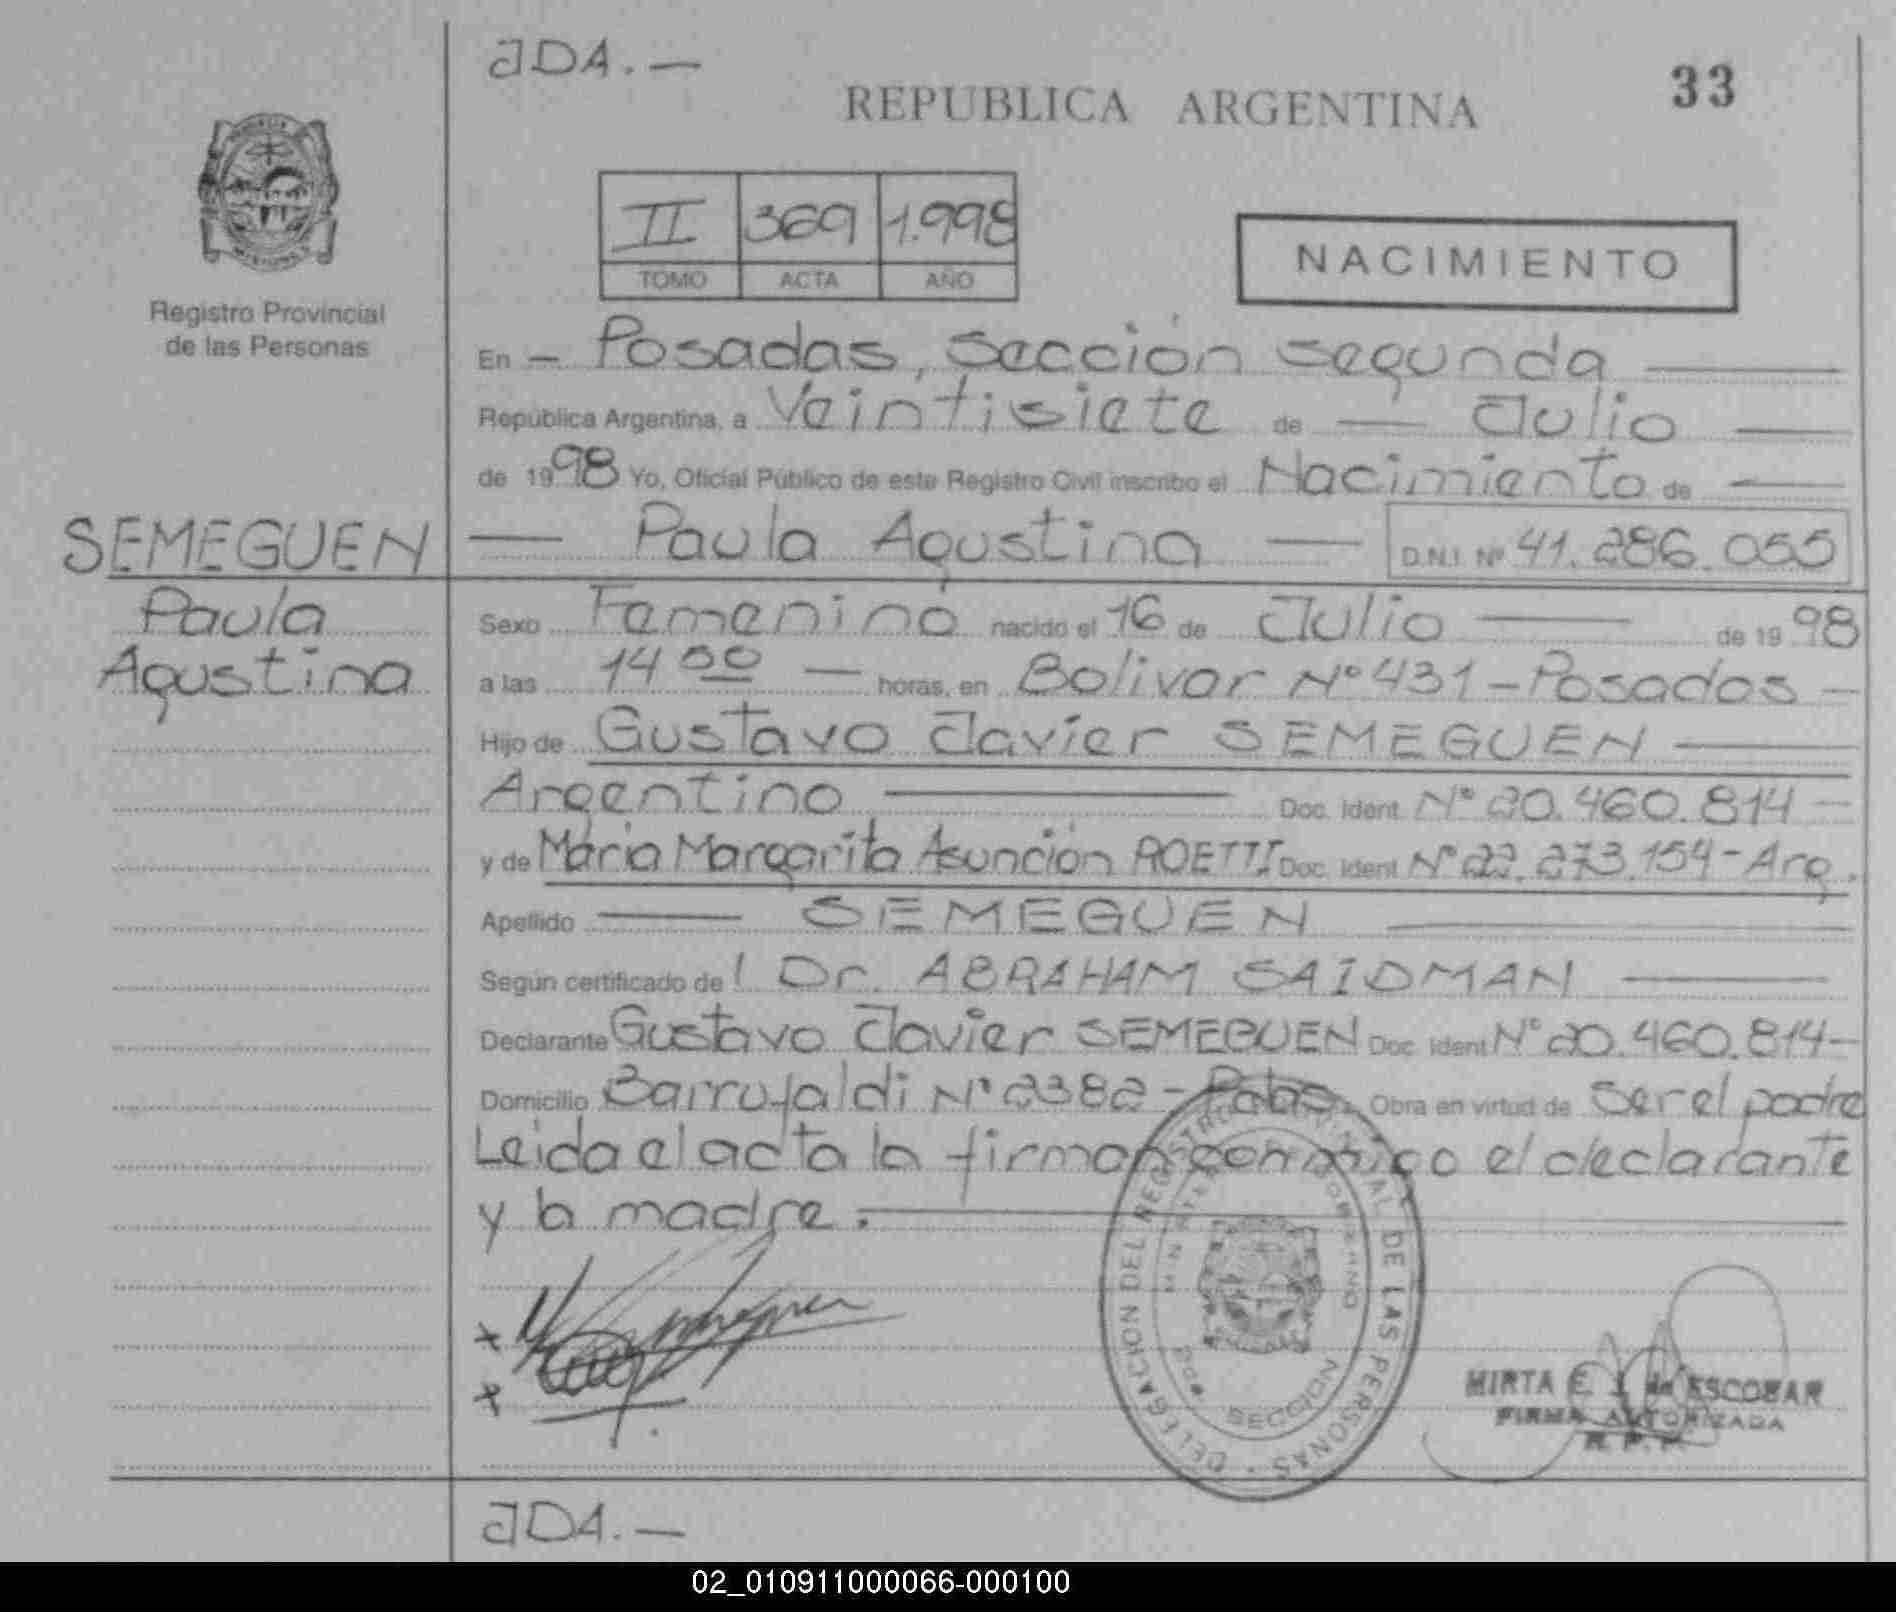 JDA.—
REPUBLICA ARGENTINA
33
II 369 1.998
TOMO ACTA AÑO
NACIMIENTO
Registro Provincial
de las Personas
En — Posadas, Sección segunda
República Argentina, a Veintisiete de — Julio
de 1998 Yo, Oficial Público de este Registro Civil inscribo el Nacimiento de —
SEMEGUEN
Paula
Agustina
— Paula Agustina — D.N.I. Nº 41.286.055
Sexo Femenino nacido el 16 de Julio — de 1998
a las 14 00 — horas, en Bolivar Nº 431 - Posadas -
Hijo de Gustavo Javier SEMEGUEN
Argentino — Doc. Ident. Nº 20.460.814 —
y de Maria Margarita Asunción ROETTI Doc. Ident Nº 22.273.154 - Arg.
Apellido — SEMEGUEN —
Según certificado de l Dr. ABRAHAM SAIDMAN —
Declarante Gustavo Javier SEMEGUEN Doc. Ident Nº 20.460.814 —
Domicilio Barrufaldi Nº 2382 - Pdas. Obra en virtud de Ser el padre
Leida el acta la firman conmigo el declarante
y la madre. —
DELEGACION DEL REGISTRO PROVINCIAL DE LAS PERSONAS
SECCION
MIRTA E. de ESCOBAR
FIRMA AUTORIZADA
R. P. P.
JDA.—
02_010911000066-000100